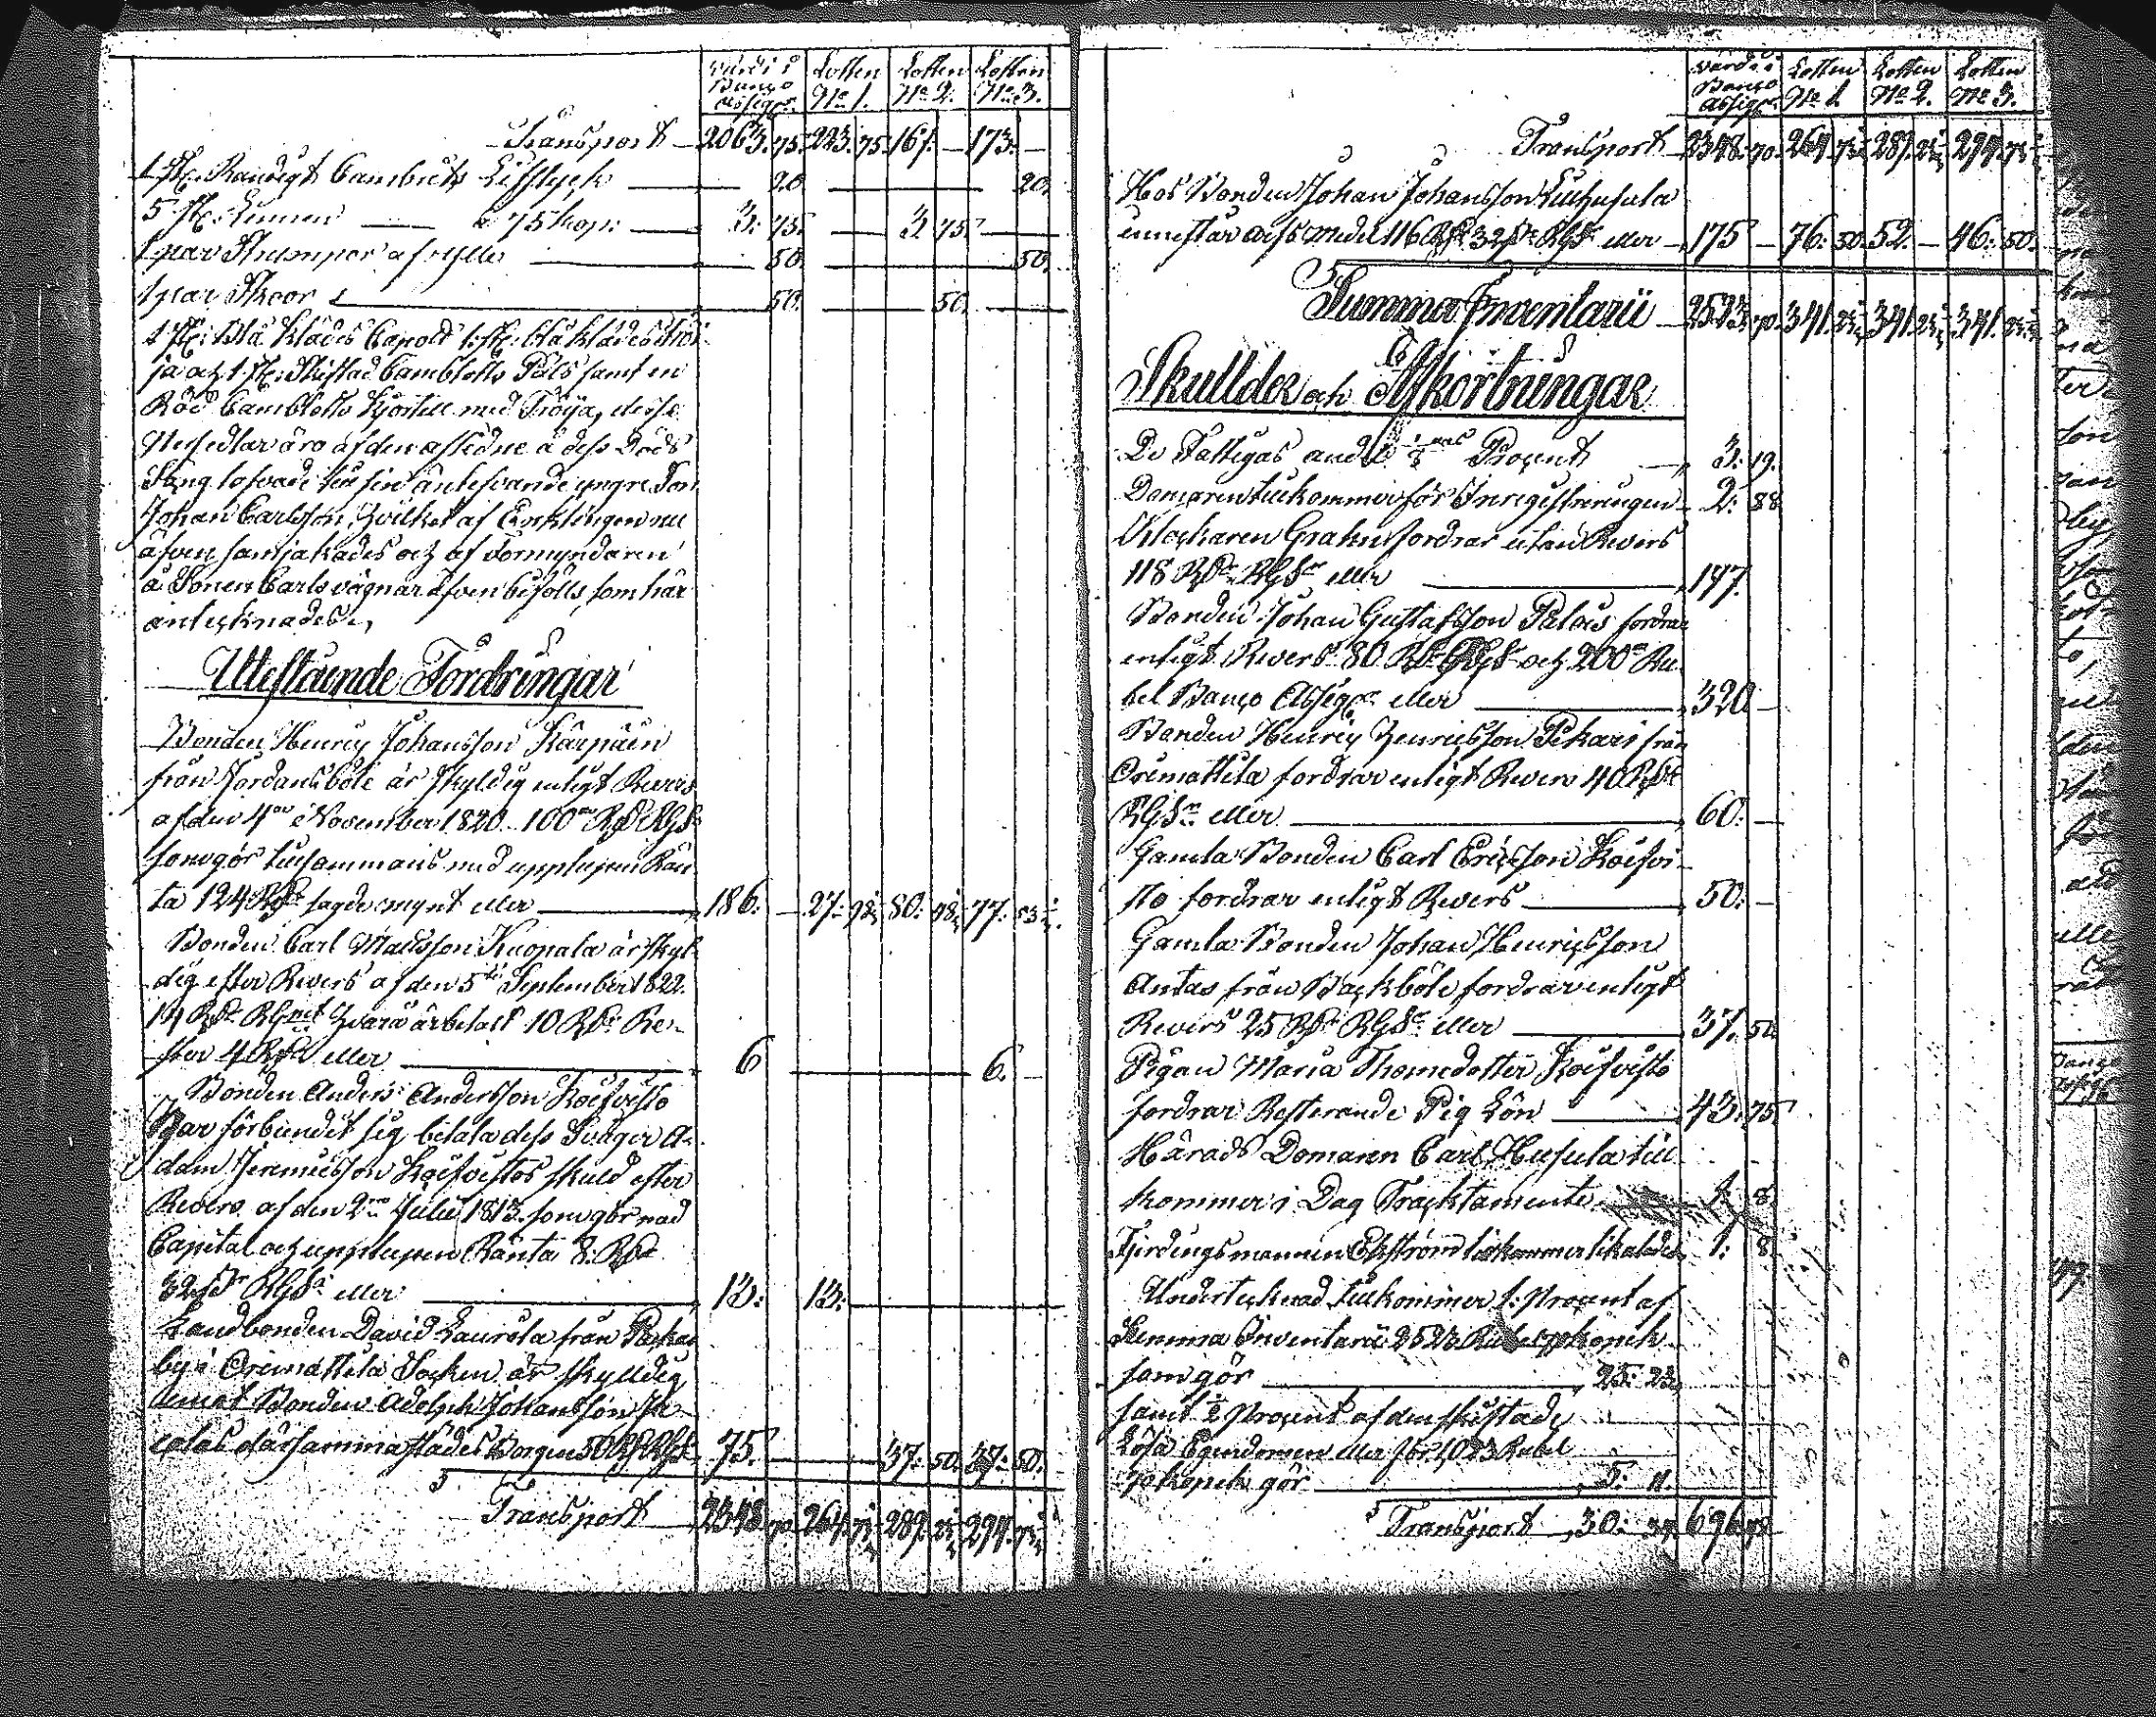 Värde i Banco Assign: Lotten No 1. Lotten No 2. Lotten No 3.
Transport 2063. 75. 223. 75. 167. — 173. —
1 st. Randigt Cambiets Lifstyck — 20. — 20.
5 st. Linnen — a 75 kop: — 3. 75. — 3. 75.
1 par Strumpor af ylle — 50. — 50.
1 par Skoor — 50. — 50.
1 st: Blå klädes Capold 1: st: blå klädes
ja och 1 st: Camblotts Päls samt en
Röd Camblotts Kjortell med Tröija, desse
Persedlar äro af den afledne å dess Döds
Säng lofvade till sin äfterlefvande yngre Son
Johan Carlsson, hvilket af Enklingen nu
äfven samjakades och af Förmyndaren
å Sonen Carls vägnar äfven bifölls som här
antecknades,
Utestående Fordringar
Bonden Henric Johansson Kärpäin
från Jordansböle är skyldig enligt Revers
af den 4de November 1820 100 Rdr RGSr
som gör tillsammans med upplupen Rän-
ta 124 Rdr sagde mynt eller — 186. — 27. 98 80. 48 77. 53
Bonden Carl Mattsson Kuopala är skyl-
dig efter Revers af den 5te September 1822.
14 Rdr RGmt hvarå är betalt 10 Rdr Re-
ster 4 Rdr eller — 6 — 6. —
Bonden Anders Andersson Koifvisto
Har förbundit sig betala dess Svåger A-
dam Jeremiesson Koifvistos skuld efter
Revers af den 2dre Julii 1813. som gör med
Capital och upplupen Ränta 8. Rdr
32 sk RGSr eller — 13. 13.
Landbonden David Laurola från
by i Orimattila Socken är skylldig
emot Bonden Adolph Johansson
därsammastädes Borgen 50 Rdr RGSr 75. — 37. 50. 37. 50.
Transport 2348. 70. 264. 289. 294.
Värde i Banco Assign: Lotten No 1. Lotten No 2. Lotten No 3.
Transport 2348. 70. 264. 289. 294.
Hos Bonden Johan Johansson
innestår arfsmedel 116 Rdr 32 sk RGSr eller — 175 — 76. 50. 52. — 46. 50.
Summa Inventarii 2523. 70. 341. 341. 341.
Skullder och Afkortningar
De Fattigas andel 1/8 Procent — 3. 19.
Domaren tillkommer för Inregistreringen — 2. 88
Klockaren Grahn fordrar utan Revers
118 Rdr RGSr eller — 177.
Bonden Johan Gustafsson Palois fordrar
enligt Revers 80 Rdr RGSr och 200 Ru-
bel Banco Assign: eller — 320 —
Bonden Henric Henricsson Pekari från
Orimattila fordrar enligt Revers 40 Rdr
RGSr eller — 60. —
Gamla Bonden Carl Ericsson Koifvi-
sto fordrar enligt Revers — 50. —
Gamla Bonden Johan Henricsson
Antas från Backböle fordrar enligt
Revers 25 Rdr RGSr eller — 37. 50
Pigan Maria Thomedotter Koifvisto
fordrar Resterande Pig Lön — 43. 75
Härads Domaren Carl Husula till
kommer i Dag Tracktamente 1. 8
Fjerdingsmannen Ekström tillkommer likaledes 1. 8
Undertecknad tillkommer 1. Procent af
Summa Inventarii 2523 Rubel 70 kopek
som gör — 25. 23
samt ½ Procent af den skiftade
Lösa Egendomen eller för 1023 Rubel
70 kopek gör — 5. 11.
Transport 30. 34. 696. 48